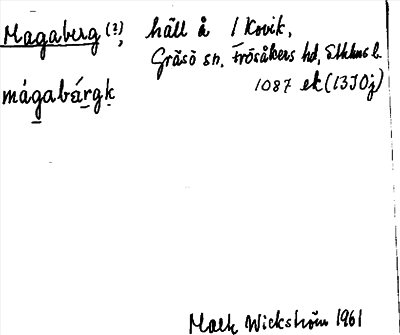 Magaberg (?), häll å 1 Kovik,
Gräsö sn, Frösåkers hd, Sthlms l.
mágabárgk 1087 ek (13I0j)
Mats Wickström 1961